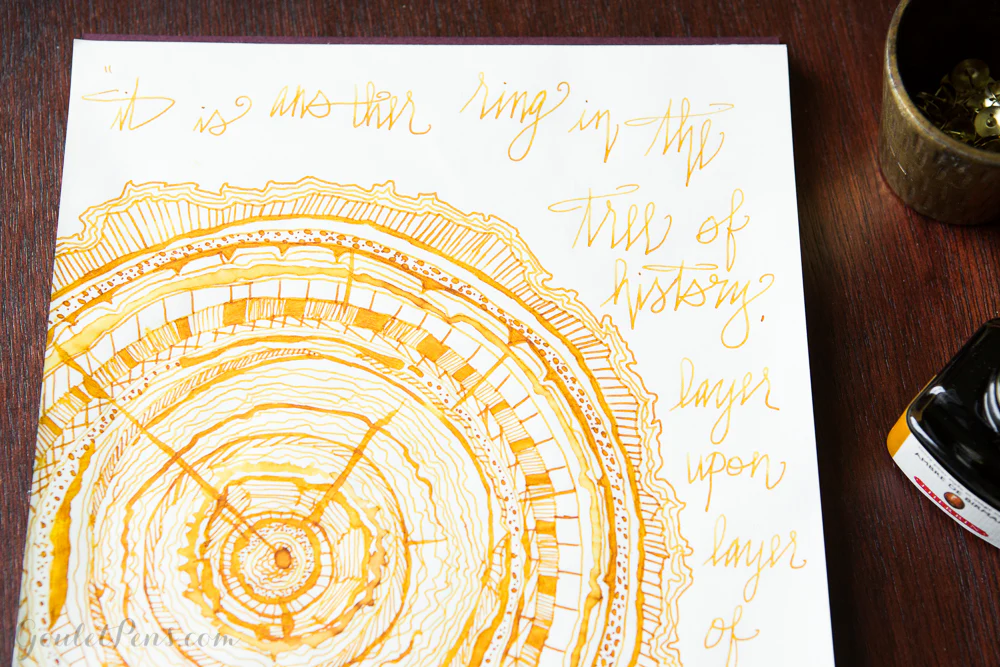 "it is another ring in the
tree of
history.
layer
upon
layer
of
AMBRE DE BIRMANIE
J. HERBIN
GouletPens.com